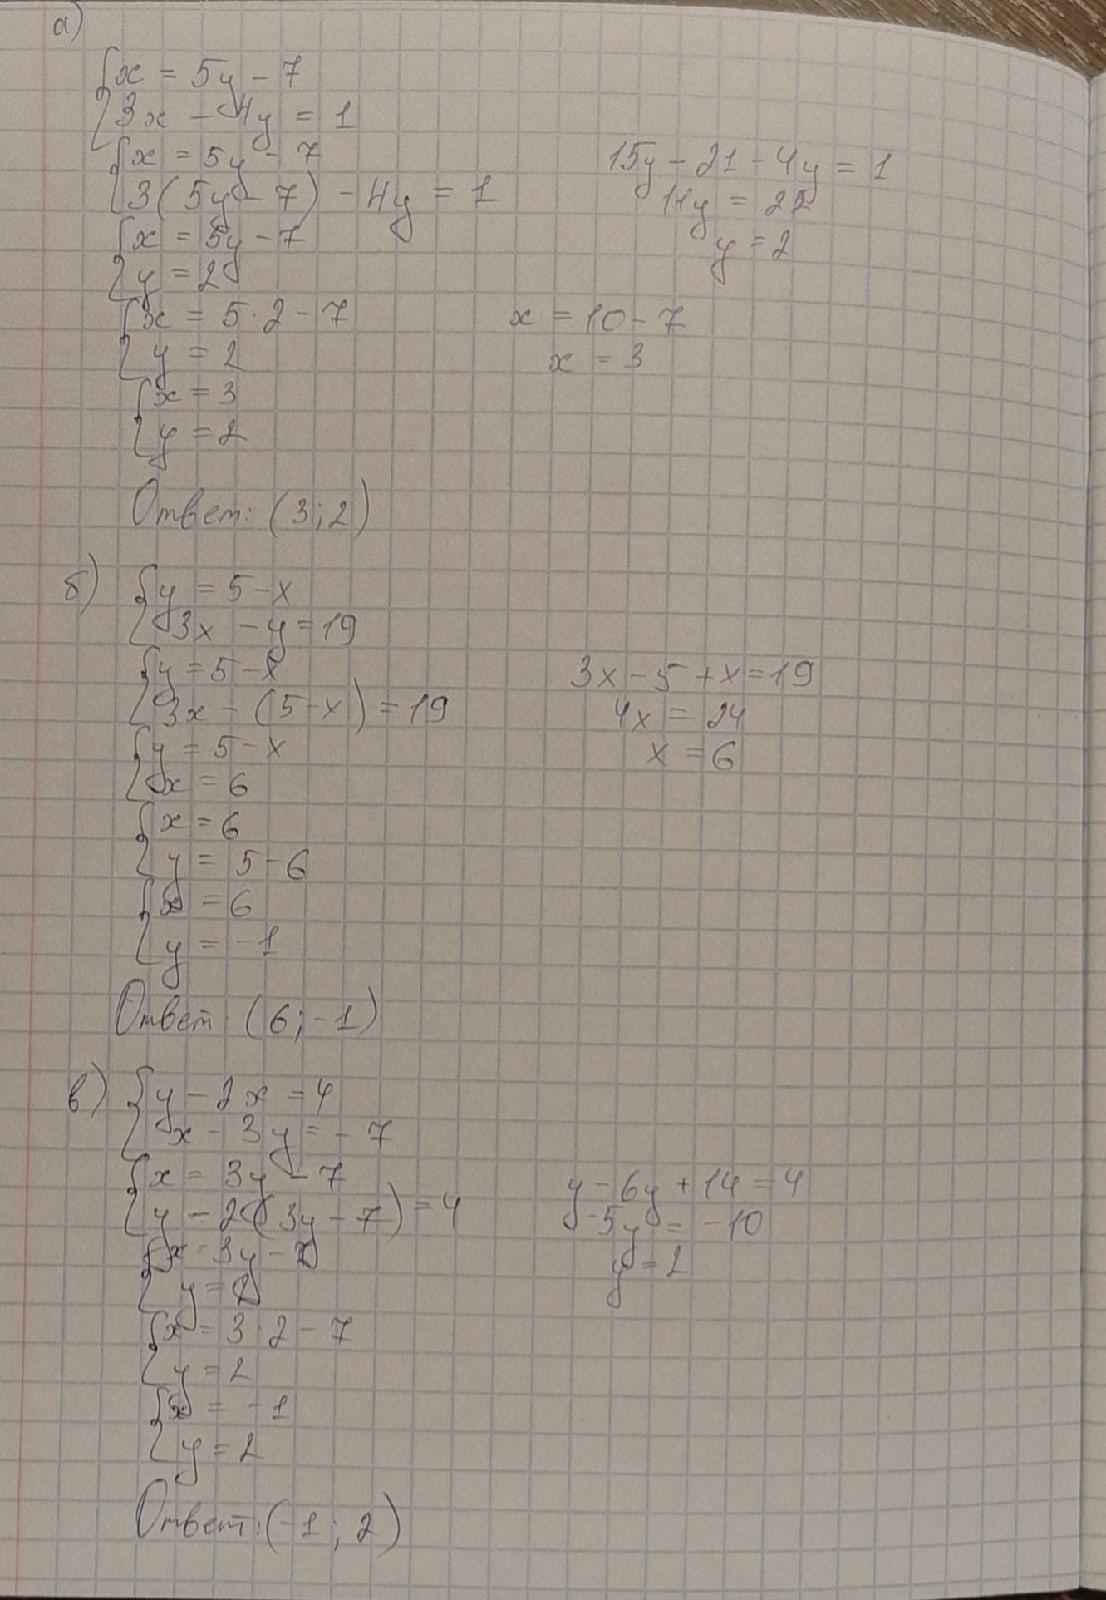 а)
{x = 5y - 7
{3x - 4y = 1
{x = 5y - 7
15y - 21 - 4y = 1
{3(5y - 7) - 4y = 1
11y = 22
{x = 5y - 7
y = 2
{y = 2
{x = 5·2 - 7
x = 10 - 7
{y = 2
x = 3
{x = 3
{y = 2
Ответ: (3; 2)
б) {y = 5 - x
{3x - y = 19
{y = 5 - x
3x - 5 + x = 19
{3x - (5 - x) = 19
4x = 24
{y = 5 - x
x = 6
{x = 6
{x = 6
{y = 5 - 6
{x = 6
{y = -1
Ответ: (6; -1)
в) {y - 2x = 4
{x - 3y = -7
{x = 3y - 7
y - 6y + 14 = 4
{y - 2(3y - 7) = 4
-5y = -10
{x = 3y - 7
y = 2
{y = 2
{x = 3·2 - 7
{y = 2
{x = -1
{y = 2
Ответ: (-1; 2)